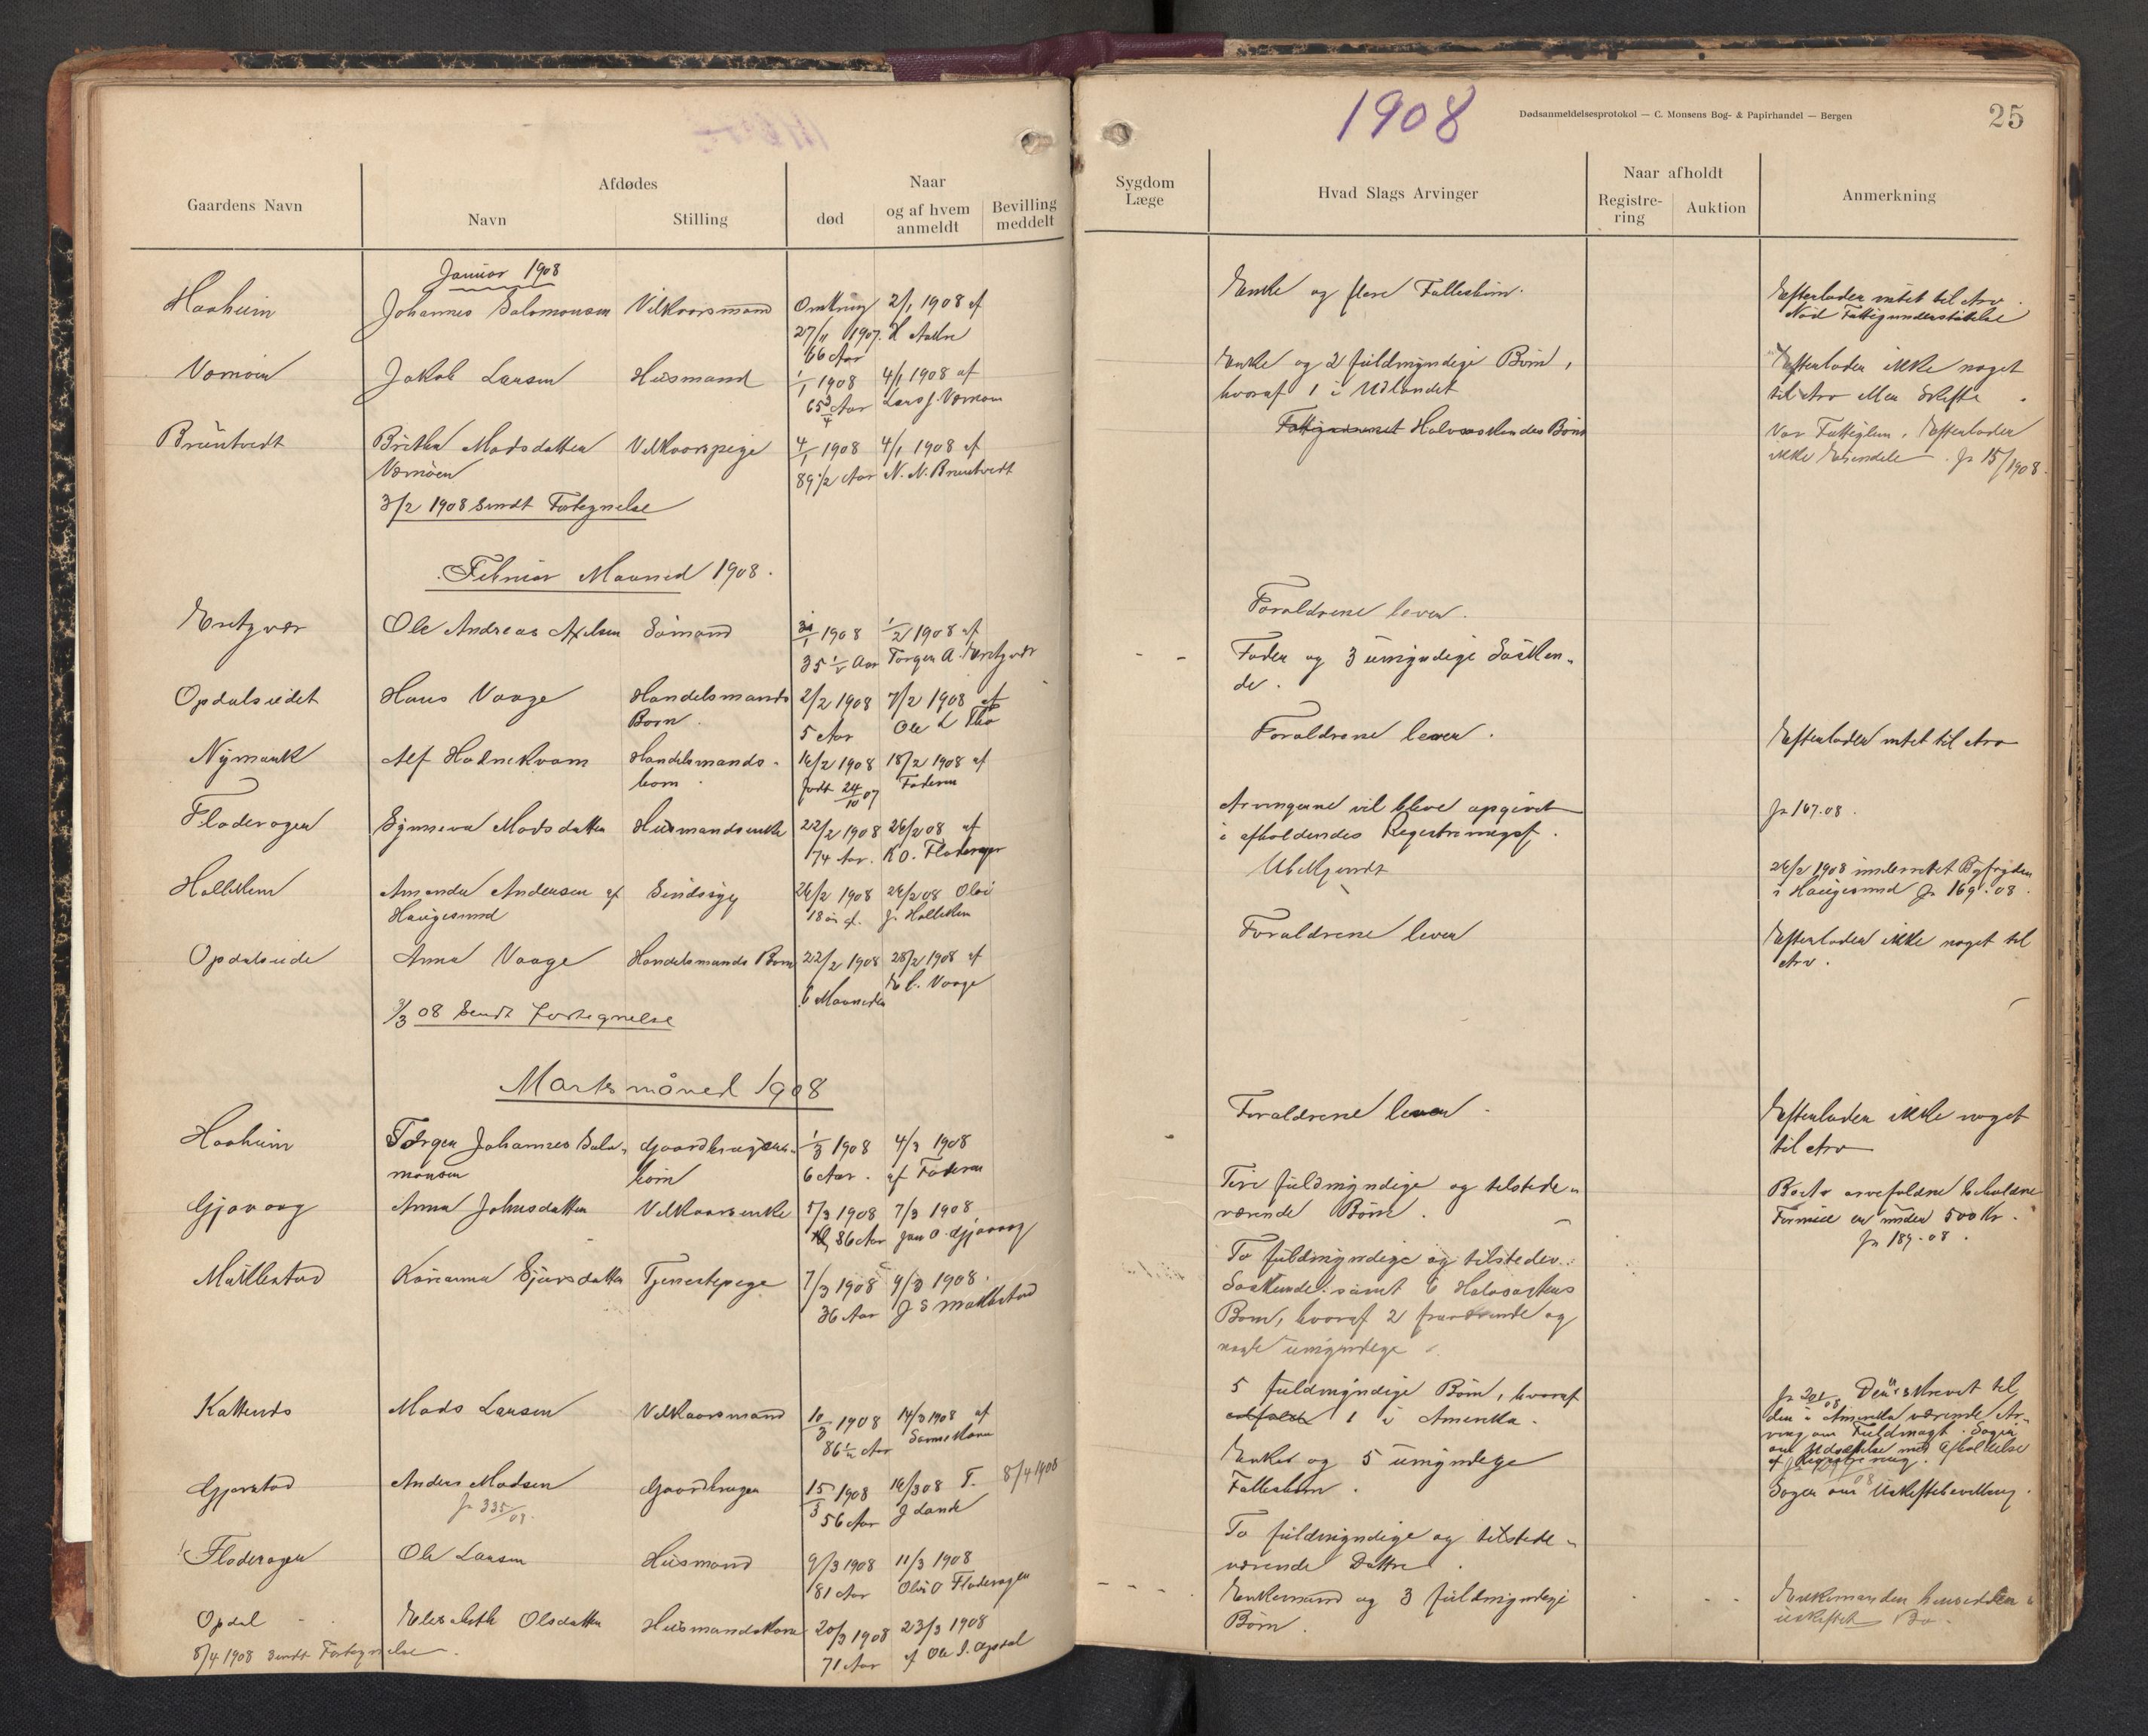 1908
Dødsanmeldelsesprotokol — C. Monsens Bog- & Papirhandel — Bergen
25
Gaardens Navn
Afdødes
Navn
Stilling
Naar
død
og af hvem anmeldt
Bevilling meddelt
Sygdom
Læge
Hvad Slags Arvinger
Naar afholdt
Registre-
ring
Auktion
Anmerkning
Januar 1908
Haaheim Johannes Salomonsen Vilkaarsmand Omkring 2/1 1908 af
27/11 1907.
66 Aar
Enke og flere Fællesbørn.
Efterlader intet til Arv.
Nød Fattigunderstøttelse
Jakob Larsen Husmand 1/1 1908 4/1 1908 af
65 3/4 Aar Lars J.
Enke og 2 fuldmyndige Børn,
hvoraf 1 i Udlandet
Efterlader ikke noget
til Arv eller Skifte
Bruntvedt Britha Madsdatter Vilkaarspige 4/1 1908 4/1 1908 af
89 1/2 Aar N. N. Bruntvedt
Halvsøskendes Børn
Var Fattiglem. Efterlader
ikke Eiendele. Jr 15/1908.
3/2 1908 Sendt Fortegnelse
Februar Maaned 1908.
Ole Andreas Axelsen Sømand 31/1 1908 1/2 1908 af
35 1/2 Aar Torger A.
Forældrene lever.
Fader og 3 umyndige Søsken-
de.
Opdalseidet Hans Vaage Handelsmands 2/2 1908 7/2 1908 af
Barn. 5 Aar Ole L
Forældrene lever.
Efterlader intet til Arv
Nymark Alf Halnekvam Handelsmands- 16/2 1908 18/2 1908 af
barn. født 24/10 07 Faderen
Fladevagen Synneva Madsdatter Husmandsenke 22/2 1908 26/2 08 af
74 Aar. K O. Flatevagen
Arvingerne vil blive opgivet
i afholdendes Registreringsf.
Jr 167.08.
Amanda Andersen af Sindssyg 26/2 1908 26/2 08
Haugesund 18 år
Ubekjendt
26/2 1908 underrettet Byfogden
i Haugesund Jr 169.08.
Opdalseide Anna Vaage Handelsmands Barn 22/2 1908 28/2 1908 af
6 Maaneder Vaage
Forældrene lever
Efterlader ikke noget til
Arv.
3/3 08 Sendt Fortegnelse
Marts måned 1908
Haaheim Torger Johannes Salo- Gaardbruger- 1/3 1908 4/3 1908
monsen barn 6 Aar. af Faderen
Forældrene lever.
Efterlader ikke noget
til Arv
Gjøvaag Anna Johnsdatter Vilkaarsenke 5/3 1908 7/3 1908
86 Aar Jan O. Gjøvaag
Fire fuldmyndige og tilstede-
værende Børn.
Boets arvefaldne beholdne
Formue er under 500 Kr.
Jr 189.08.
Mæhlestad Karianna Sjursdatter Tjenestepige 7/3 1908 9/3 1908.
36 Aar J S Mæhlestad
To fuldmyndige og tilstedev.
Søskende samt 6 Halvsøskens
Børn, hvoraf 2 fraværende og
nogle umyndige.
Mads Larsen Vilkaarsmand 10/3 1908 14/3 1908 af
86 1/2 Aar
5 fuldmyndige Børn, hvoraf
1 i Amerika.
Jr 201/08 Den skrevet til
den i Amerika værende Ar-
ving om Fuldmagt. Søger
om Udsættelse med Afholdelse
af Registrering.
Gjerstad Anders Madsen Gaardbruger 15/3 1908 16/3 08 T. 8/4 1908
Jr 335/08. 56 Aar J Lande
Enke og 5 umyndige
Fællesbørn.
Søger om Uskiftebevilling.
Fladevagen Ole Larsen Husmand 9/3 1908 11/3 1908
81 Aar Ole O Fladevagen
To fuldmyndige og tilstede-
værende Døttre.
Opdal Elisabeth Olsdatter Husmandskone 20/3 1908 23/3 1908
71 Aar af Ole I. Opdal
Enkemand og 3 fuldmyndige
Børn.
Enkemanden hensidder i
uskiftet Bo.
8/4 1908 Sendt Fortegnelse.